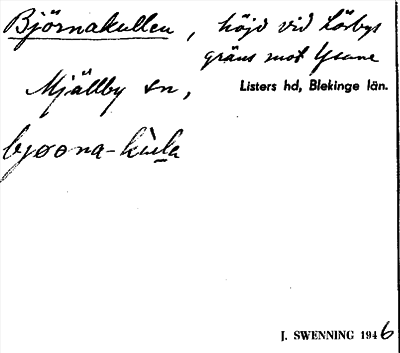 Björnakullen, höjd vid Lörbys
gräns mot Ysane
Mjällby sn, Listers hd, Blekinge län.
bjøøna-kùla
J. SWENNING 1946